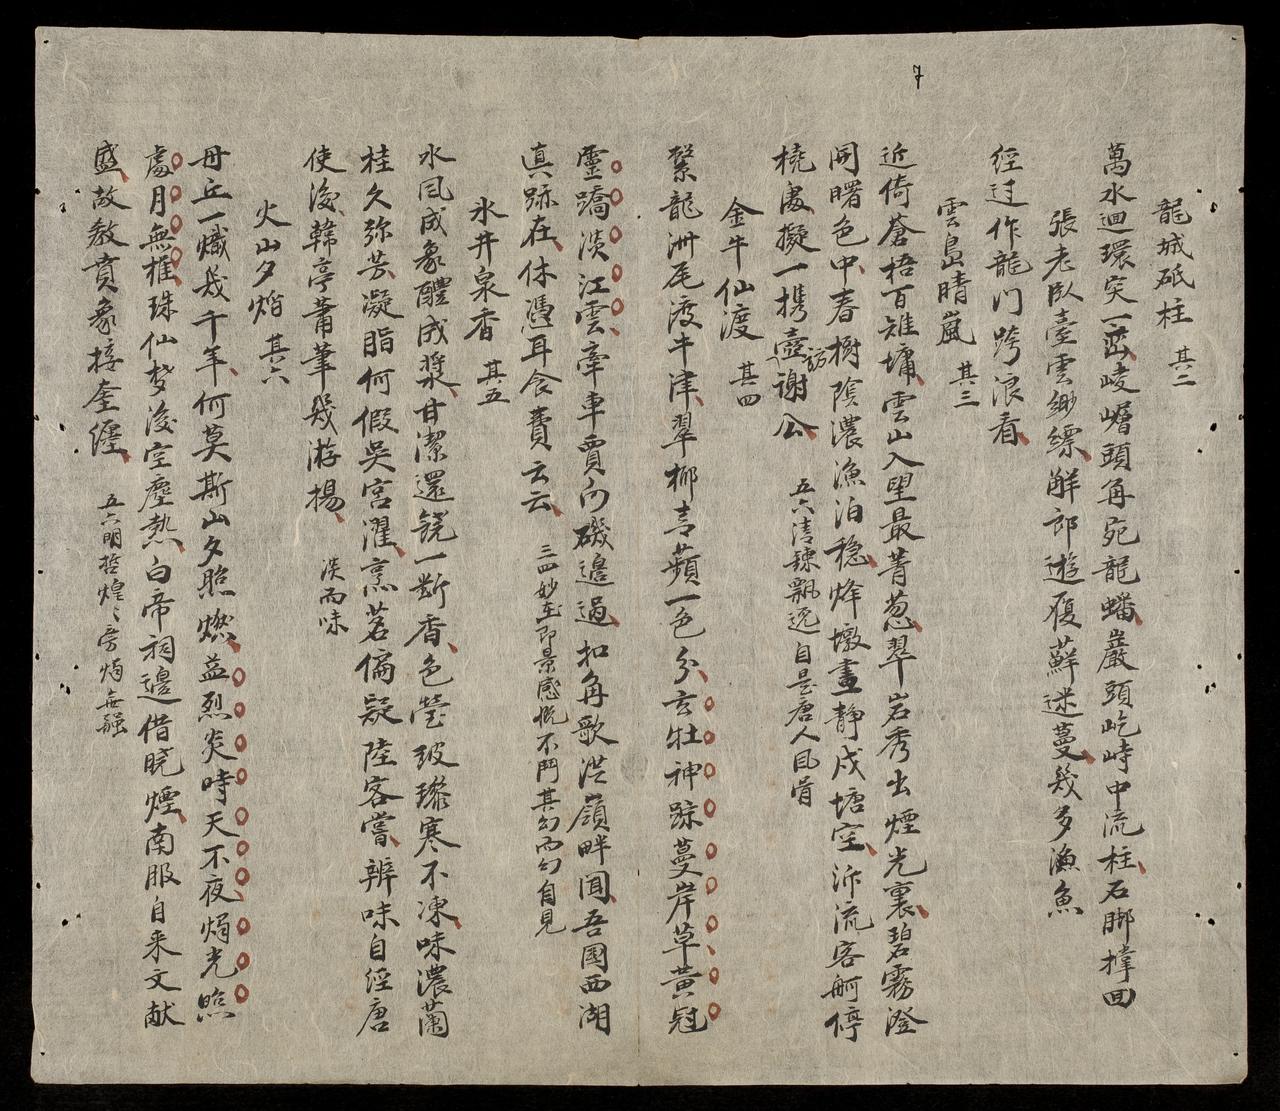 7
龍城砥柱 其二
萬水迴環突一巒崚嶒頭角宛龍蟠巖頭屹峙中流柱石脚撑回
張老臥臺雲緲縹觧郎遊履蘚迷蔓幾多漁魚
經过作龍门跨浪看
雲島晴嵐 其三
近倚蒼梧百雉墉雲山入望最菁葱翠岩秀出煙光裏碧霧澄
開曙色中春樹陰濃漁泊稳烽墩晝靜戍塘空泝流客舸停
橈處擬一携壺訪謝公 五六清辣飄逸自是唐人風骨
金牛仙渡 其四
繫龍洲尾渡牛津翠柳青蘋一色分玄牡神踪蔓岸草黄冠
靈蹻淡江雲牽車賈向磯邊過扣角歌洪嶺畔闻吾國西湖
真跡在休憑耳食費云云 三四妙在即景感慨不鬥其勾而幻自見
氷井泉香 其五
水風成象醴成漿甘潔還饒一㫁香色瑩玻瓈寒不凍味濃蘭
桂久弥芳凝脂何假吳宮濯烹茗偏疑陸客嘗辨味自經唐
使後韓亭蕭筆幾游揚 淡而味
火山夕焰 其六
毌丘一熾幾千年何莫斯山夕照燃益烈炎時天不夜焗光照
處月無權珠仙梦後空塵熱白帝祠邊借晓煙南服自来文献
盛故教賁象接奎纏 五六明哲煌〻旁燭無疆